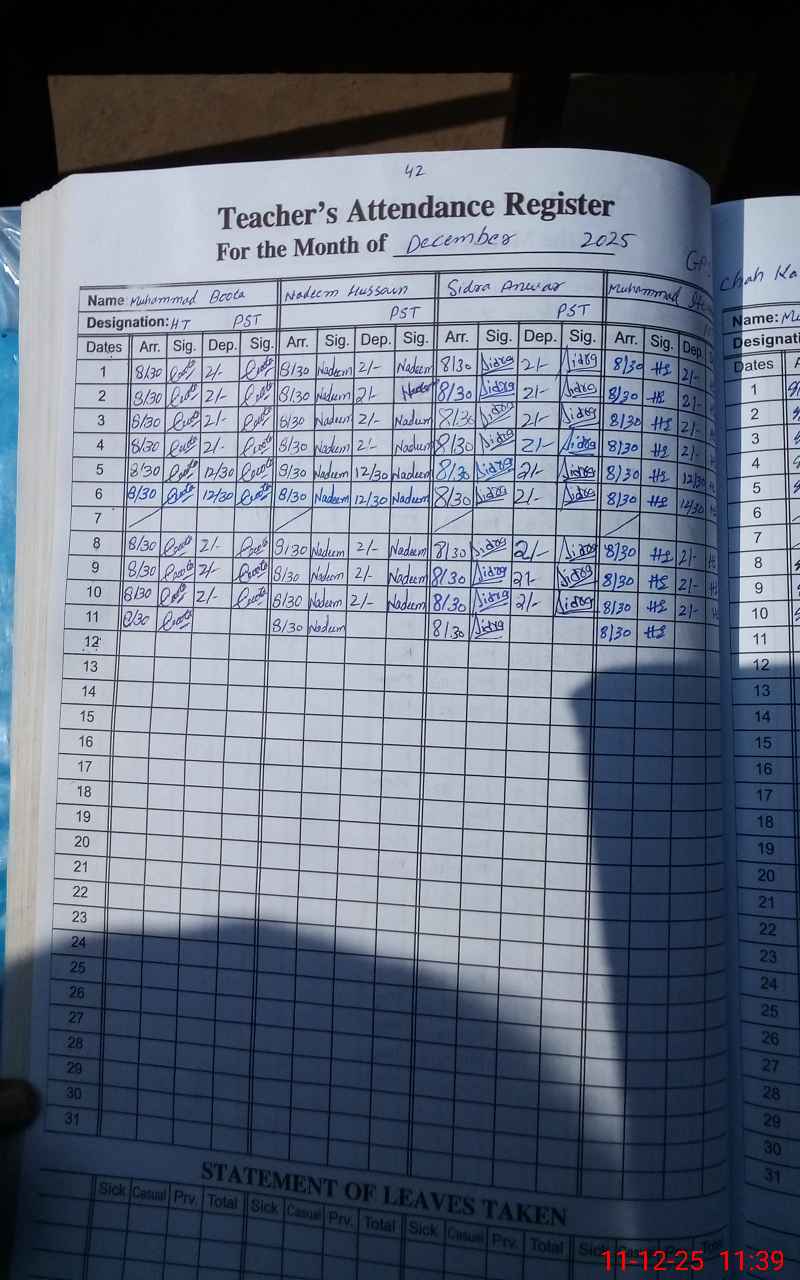 42
Teacher's Attendance Register
For the Month of December 2025
Chah
Name Muhammad Boota Nadeem Hussain Sidra Anwar Muhammad
Designation: HT PST PST PST
Dates Arr. Sig. Dep. Sig. Arr. Sig. Dep. Sig. Arr. Sig. Dep. Sig. Arr. Sig. Dep
1 8/30 Boota 2/- Boota 8/30 Nadeem 2/- Nadeem 8/30 Sidra 2/- Sidra 8/30 2/-
2 8/30 Boota 2/- Boota 8/30 Nadeem 2/- Nadeem 8/30 Sidra 2/- Sidra 8/30 2/-
3 8/30 Boota 2/- Boota 8/30 Nadeem 2/- Nadeem 8/30 Sidra 2/- Sidra 8/30 2/-
4 8/30 Boota 2/- Boota 8/30 Nadeem 2/- Nadeem 8/30 Sidra 2/- Sidra 8/30 2/-
5 8/30 Boota 12/30 Boota 8/30 Nadeem 12/30 Nadeem 8/30 Sidra 2/- Sidra 8/30 12/30
6 8/30 Boota 12/30 Boota 8/30 Nadeem 12/30 Nadeem 8/30 Sidra 2/- Sidra 8/30 12/30
7
8 8/30 Boota 2/- Boota 8/30 Nadeem 2/- Nadeem 8/30 Sidra 2/- Sidra 8/30 2/-
9 8/30 Boota 2/- Boota 8/30 Nadeem 2/- Nadeem 8/30 Sidra 2/- Sidra 8/30 2/-
10 8/30 Boota 2/- Boota 8/30 Nadeem 2/- Nadeem 8/30 Sidra 2/- Sidra 8/30 2/-
11 8/30 Boota 8/30 Nadeem 8/30 Sidra 8/30
12
13
14
15
16
17
18
19
20
21
22
23
24
25
26
27
28
29
30
31
STATEMENT OF LEAVES TAKEN
Sick Casual Prv. Total Sick Casual Prv. Total Sick Casual Prv. Total Sick
Name:
Dates
1
2
3
4
5
6
7
8
9
10
11
12
13
14
15
16
17
18
19
20
21
22
23
24
25
26
27
28
29
30
31
11-12-25 11:39